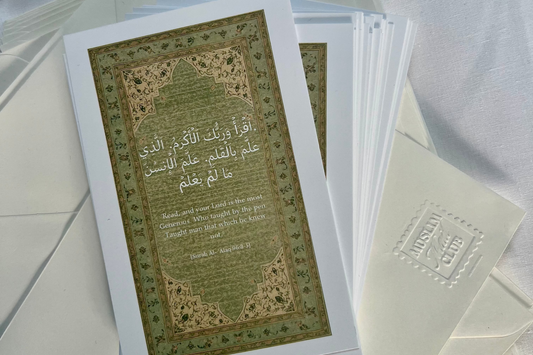 ٱقْرَأْ وَرَبُّكَ ٱلْأَكْرَمُ. ٱلَّذِي
عَلَّمَ بِٱلْقَلَمِ. عَلَّمَ ٱلْإِنسَٰنَ
مَا لَمْ يَعْلَمْ
Read, and your Lord is the most
Generous. Who taught by the pen
Taught man that which he knew
not."
MUSLIM
CLUB